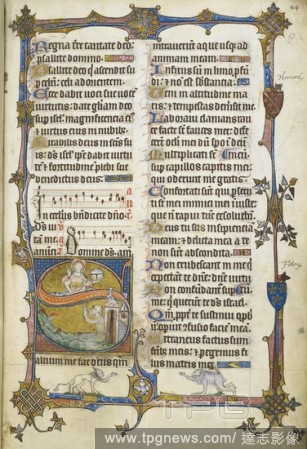 Regna terre cantate deo:
psallite domino.
Psallite deo qui ascendit sup
celi ad orientem
Ecce dabit voci sue voce
virtutis: date gliam deo
sup isrl: magnificencia ei
et virtus eius in nubib
Mirabilis deus in scis su
is: ds isrl ipe dabit virtute
et fortitudine plebi sue
benedictus deus.
In ecclis bndicite dno
Domine
alvum me fac deus qm
intraverunt aque usq ad
animam meam.
Infixus su in limo pfun
di: et no est substancia.
Veni in altitudine ma
ris: et tempestas demsit me.
Laboravi clamans rau
ce facte st fauces mee: defe
cerunt oculi mei du spo i
Multiplicati st
sup capillos capitis mei:
qui oderunt me gratis.
Confortati sunt qui psecu
ti st me inimici mei iniuste:
que n rapui tuc exsolveba
Deus tu scis insipiencia
meam: et delicta mea a te
non sunt abscondita.
Non erubescant in me qui
expectant te dne:
Non confundant sup
me: qui querut te ds israel.
Qm ppt te sustinui oppbri
opuit confusio facie mea
Extraneus factus sum
fribz meis: et pegrinus fi
liis matris mee.
www.tpgnews.com/ 達志影像